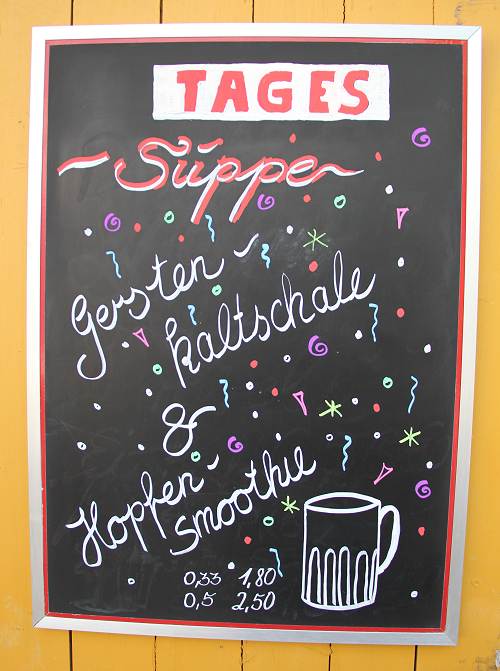 TAGES
~Suppe~
Gersten-
kaltschale
&
Hopfen-
smoothie
0,33 1,80
0,5 2,50